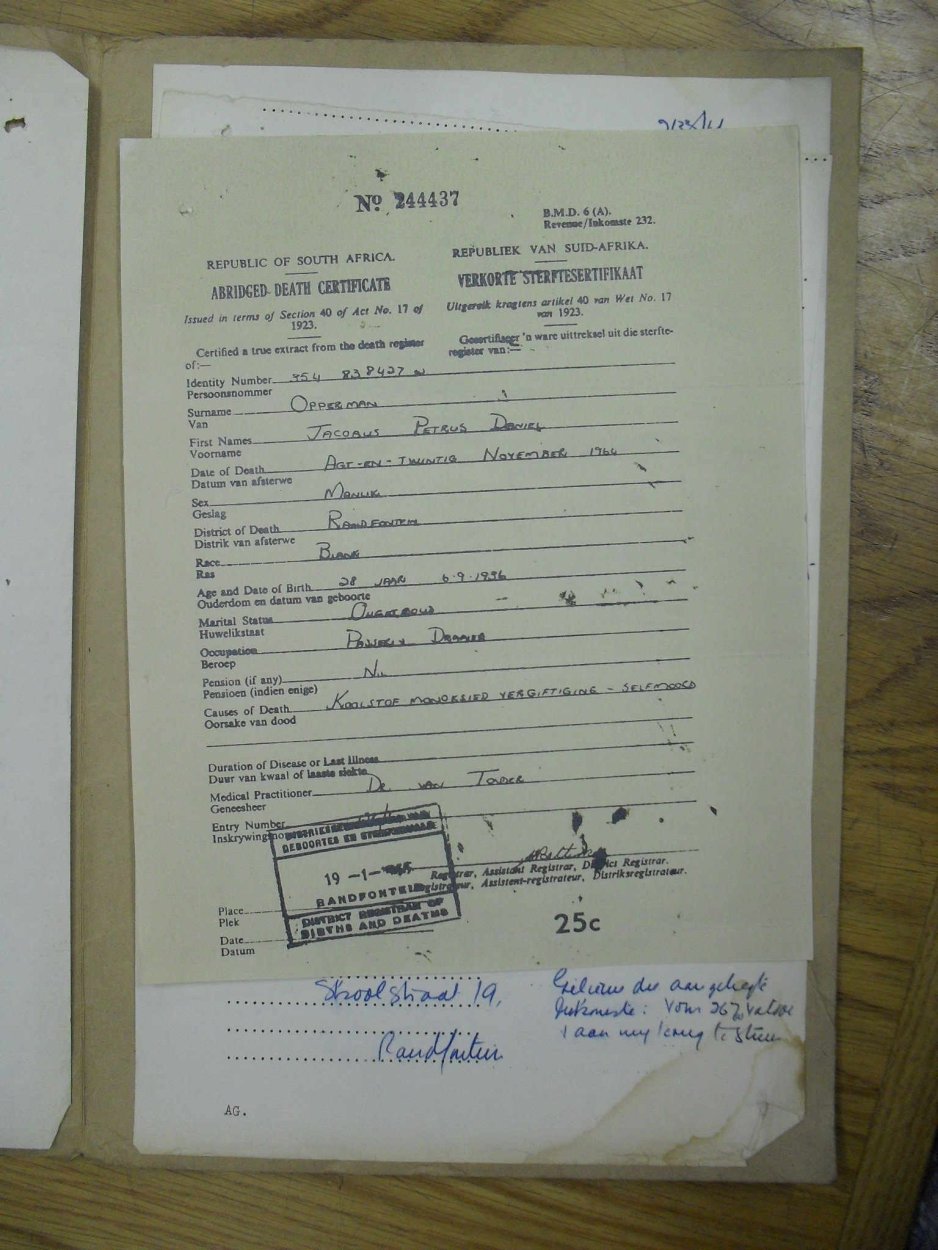 Nº 244437
B.M.D. 6 (A).
Revenue/Inkomste 232.
REPUBLIC OF SOUTH AFRICA.
ABRIDGED DEATH CERTIFICATE
Issued in terms of Section 40 of Act No. 17 of
1923.
Certified a true extract from the death register
of:—
REPUBLIEK VAN SUID-AFRIKA.
VERKORTE STERFTESERTIFIKAAT
Uitgereik kragtens artikel 40 van Wet No. 17
van 1923.
Gesertifiseer 'n ware uittreksel uit die sterfte-
register van:—
Identity Number 354 838427 W
Persoonsnommer
Surname OPPERMAN
Van
First Names JACOBUS PETRUS DANIEL
Voorname
Date of Death AGT-EN-TWINTIG NOVEMBER 1964
Datum van afsterwe
Sex MANLIK
Geslag
District of Death RANDFONTEIN
Distrik van afsterwe
Race BLANK
Ras
Age and Date of Birth 28 JAAR 6.9.1936
Ouderdom en datum van geboorte
Marital Status ONGETROUD
Huwelikstaat
Occupation
Beroep
Pension (if any) NIL
Pensioen (indien enige)
Causes of Death KOOLSTOF MONOKSIED VERGIFTIGING - SELFMOORD
Oorsake van dood
Duration of Disease or Last Illness
Duur van kwaal of laaste siekte
Medical Practitioner DR. VAN TONDER
Geneesheer
Entry Number
Inskrywingsno
GEBOORTES EN STERFGEVALLE
19 -1- 1965
RANDFONTEIN
DISTRICT REGISTRAR OF
BIRTHS AND DEATHS
Registrar, Assistant Registrar, District Registrar.
Registrateur, Assistent-registrateur, Distriksregistrateur.
Place
Plek
Date
Datum
25c
Skoolstraat 19,
Randfontein
Geliewe die aangehegte
Inkomste: Vorm 267
aan my terug te stuur
AG.